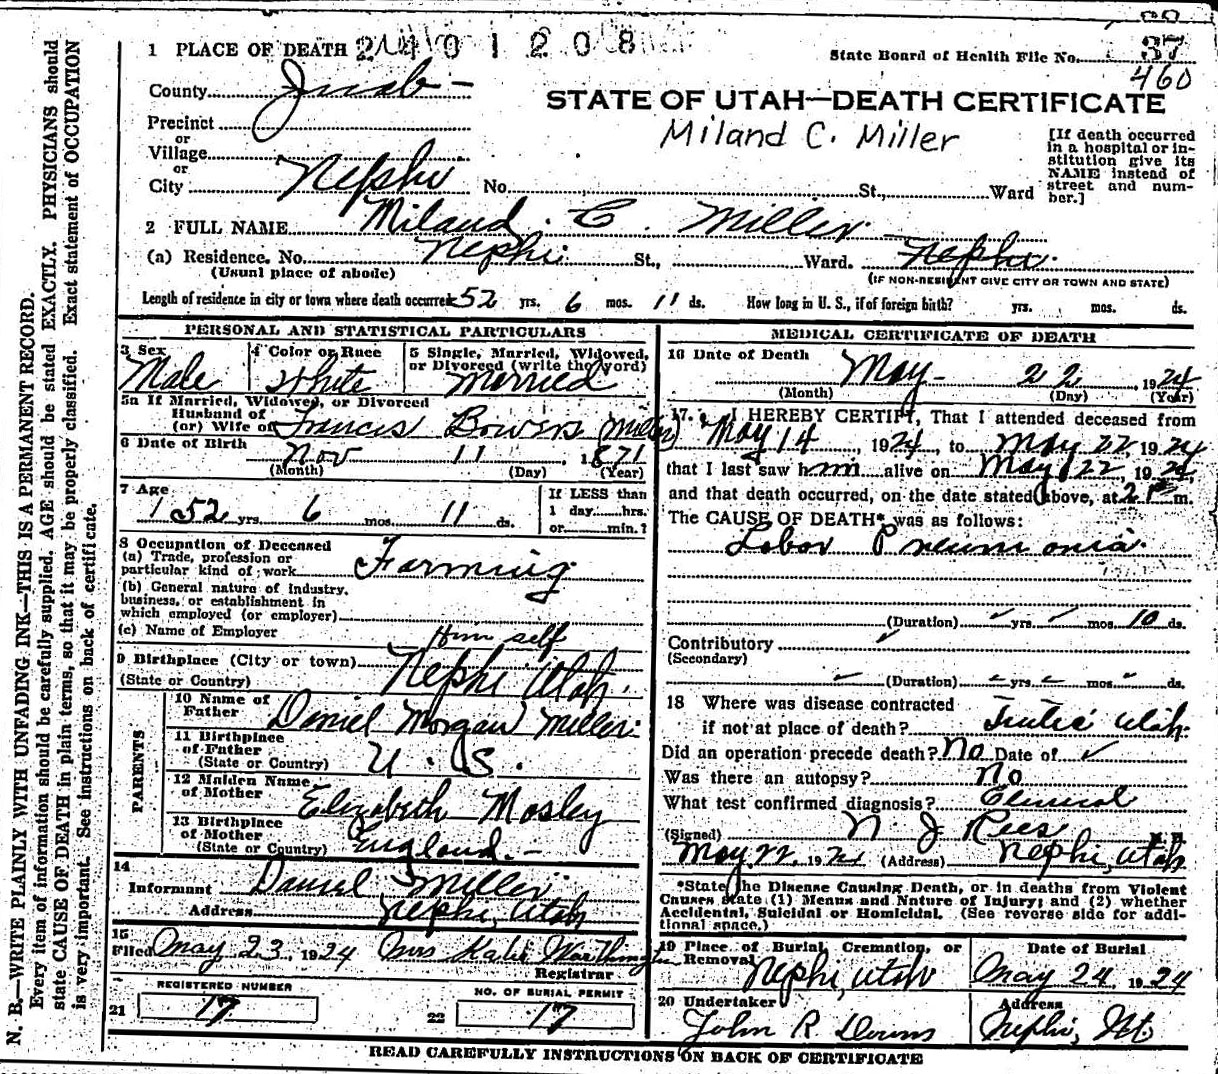 1 PLACE OF DEATH 2401208
State Board of Health File No. 37
460
County Juab -
STATE OF UTAH—DEATH CERTIFICATE
Precinct
or
Miland C. Miller
[If death occurred in a hospital or institution give its NAME instead of street and number.]
Village
or
City Nephi No. St., Ward
2 FULL NAME Miland C. Miller
(a) Residence. No. Nephi St., Ward. Nephi.
(Usual place of abode) (IF NON-RESIDENT GIVE CITY OR TOWN AND STATE)
Length of residence in city or town where death occurred 52 yrs. 6 mos. 11 ds. How long in U. S., if of foreign birth? yrs. mos. ds.
PERSONAL AND STATISTICAL PARTICULARS
3 Sex
Male
4 Color or Race
White
5 Single, Married, Widowed,
or Divorced (write the word)
Married
5a If Married, Widowed, or Divorced
Husband of
(or) Wife of Francis Bowers (Miller)
6 Date of Birth
Nov 11 1871
(Month) (Day) (Year)
7 Age
52 yrs. 6 mos. 11 ds.
If LESS than
1 day....hrs.
or....min.?
8 Occupation of Deceased
(a) Trade, profession or
particular kind of work Farming
(b) General nature of industry,
business, or establishment in
which employed (or employer)
(c) Name of Employer Him self
9 Birthplace (City or town)
(State or Country) Nephi Utah.
PARENTS
10 Name of
Father Daniel Morgan Miller
11 Birthplace
of Father
(State or Country) U. S.
12 Maiden Name
of Mother Elizabeth Mosley
13 Birthplace
of Mother
(State or Country) England. -
14
Informant Daniel Miller
Address Nephi, Utah
15
Filed May 23, 1924 Mrs
Registrar
REGISTERED NUMBER
21 17
NO. OF BURIAL PERMIT
22 17
MEDICAL CERTIFICATE OF DEATH
16 Date of Death
May - 22, 1924
(Month) (Day) (Year)
17. I HEREBY CERTIFY, That I attended deceased from
May 14, 1924, to May 22, 1924
that I last saw him alive on May 22, 1924,
and that death occurred, on the date stated above, at 2 P m.
The CAUSE OF DEATH* was as follows:
Lobar Pneumonia.
(Duration) yrs. mos. 10 ds.
Contributory
(Secondary)
(Duration) yrs. mos. ds.
18 Where was disease contracted
if not at place of death? Tintic Utah.
Did an operation precede death? No Date of
Was there an autopsy? No
What test confirmed diagnosis?
(Signed) N. J. Rees
May 22, 192 (Address) Nephi, Utah
*State the Disease Causing Death, or in deaths from Violent
Causes state (1) Means and Nature of Injury; and (2) whether
Accidental, Suicidal or Homicidal. (See reverse side for addi-
tional space.)
19 Place of Burial, Cremation, or
Removal
Nephi, Utah
Date of Burial
May 24, 1924
20 Undertaker
John R
Address
Nephi, Ut
READ CAREFULLY INSTRUCTIONS ON BACK OF CERTIFICATE
N. B.—WRITE PLAINLY WITH UNFADING INK—THIS IS A PERMANENT RECORD.
Every item of information should be carefully supplied. AGE should be stated EXACTLY. PHYSICIANS should
state CAUSE OF DEATH in plain terms, so that it may be properly classified. Exact statement of OCCUPATION
is very important. See instructions on back of certificate.